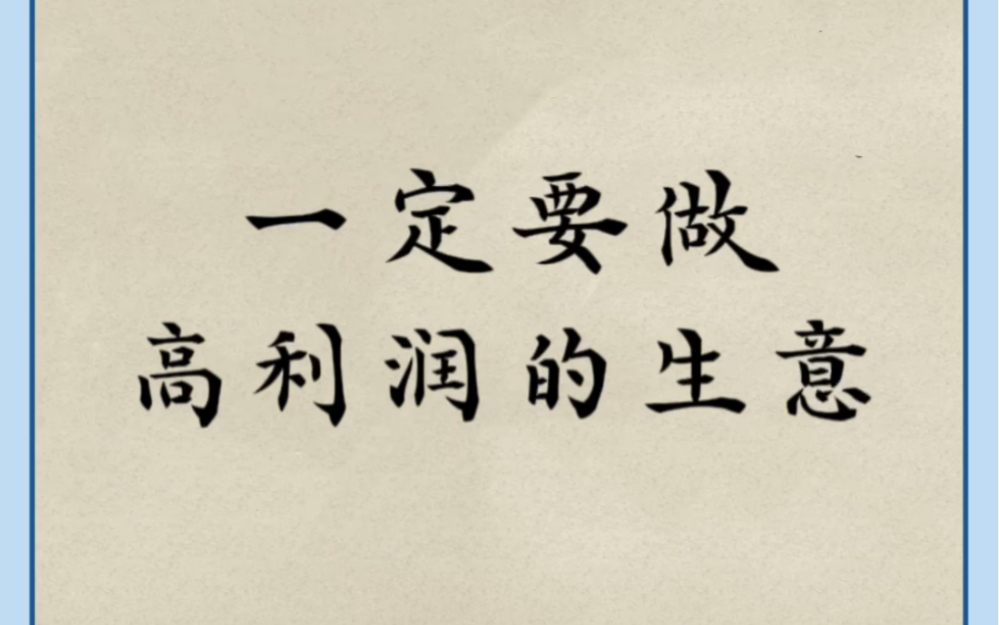 一定要做
高利润的生意